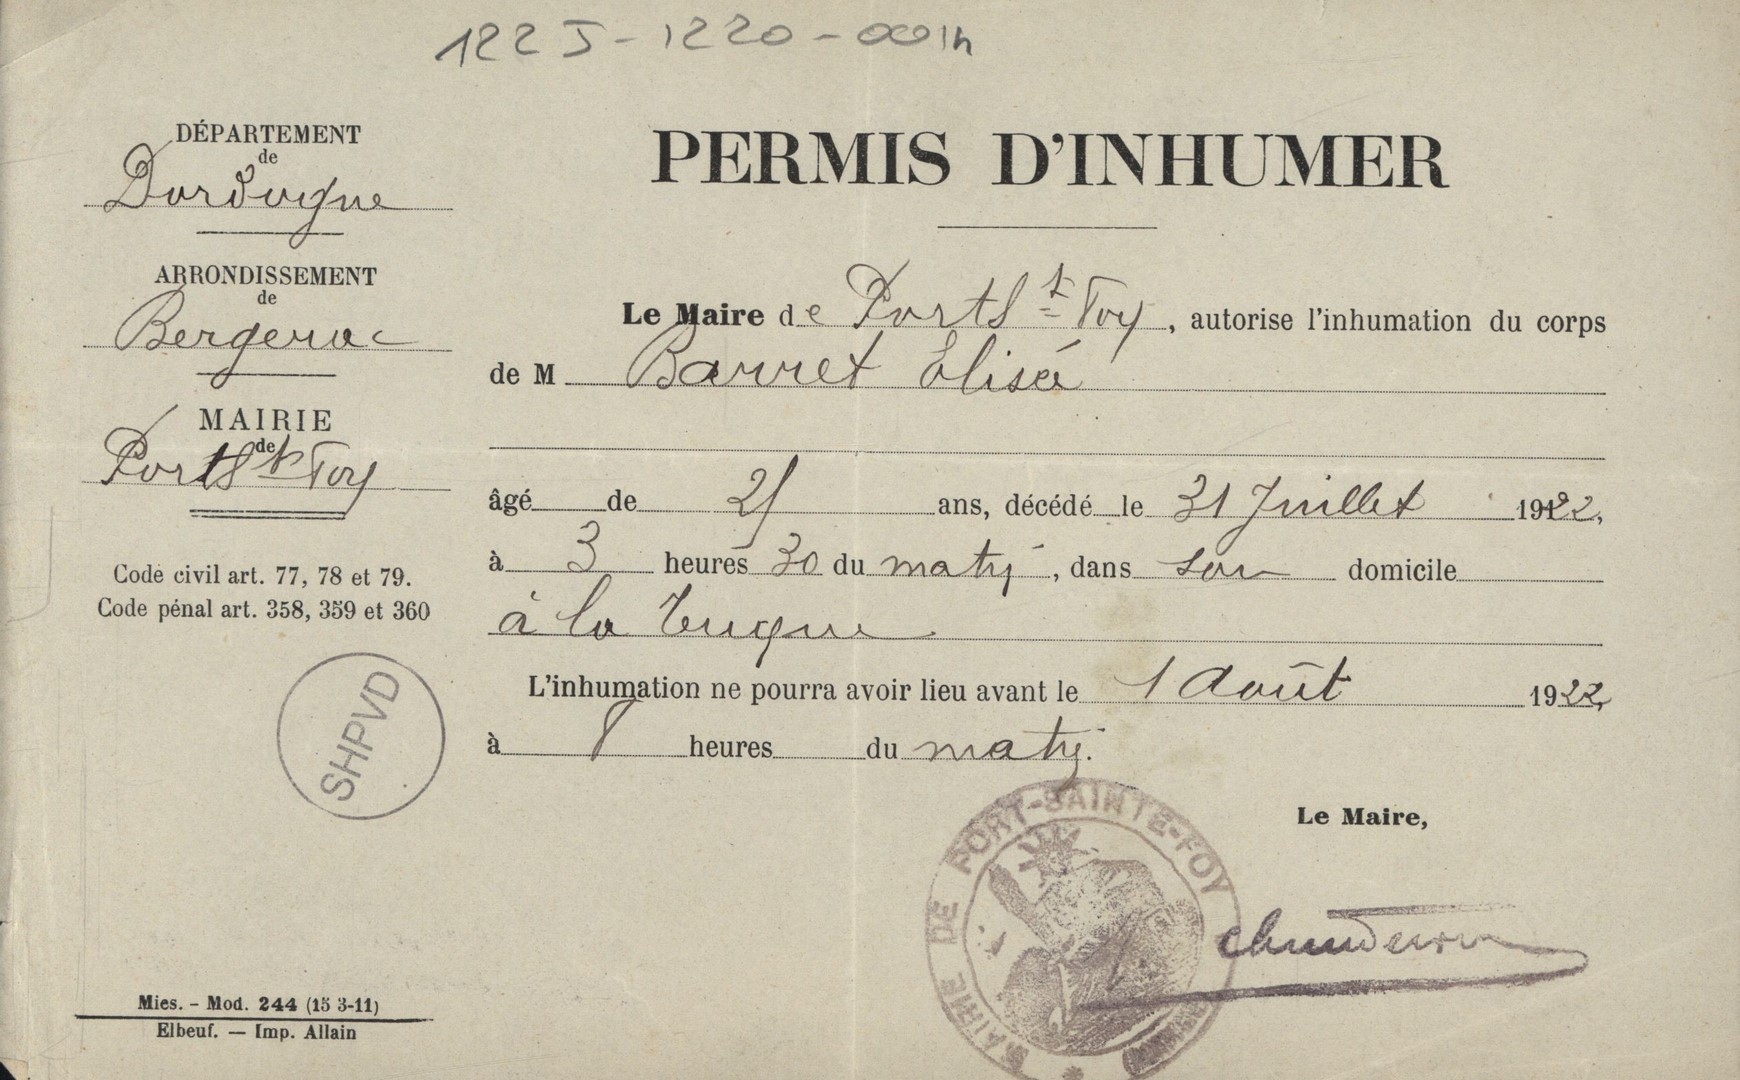 122 J - 1220 - 001h
DÉPARTEMENT
de
Dordogne
ARRONDISSEMENT
de
Bergerac
MAIRIE
de
Port Ste Foy
Code civil art. 77, 78 et 79.
Code pénal art. 358, 359 et 360
SHPVD
Mies. - Mod. 244 (15 3-11)
Elbeuf. — Imp. Allain
PERMIS D'INHUMER
Le Maire de Port Ste Foy, autorise l'inhumation du corps
de M Barret Elisé
âgé de ans, décédé le 31 Juillet 1922,
à 3 heures 30 du matin, dans son domicile
à la
L'inhumation ne pourra avoir lieu avant le 1 Août 1922,
à heures du matin.
Le Maire,
MAIRIE DE PORT-SAINTE-FOY